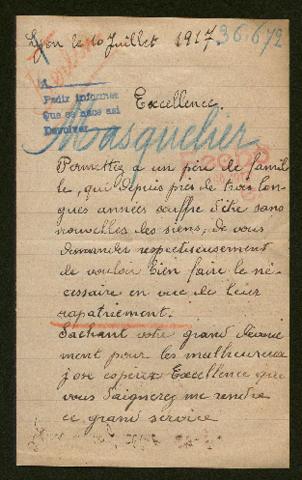 Lyon le 10 Juillet 1917
36.672
A
Pedir informes
Que se hace asi
Devolver
Excellence.
Masquelier
Permettez a un père de famil
le, qui depuis près de trois lon
gues années souffre d'être sans
nouvelles des siens, de vous
demander respectueusement
de vouloir bien faire le né-
cessaire en vue de leur
rapatriement.
Sachant votre grand dévoue
ment pour les malheureux
j'ose espérer Excellence que
vous daignerez me rendre
ce grand service